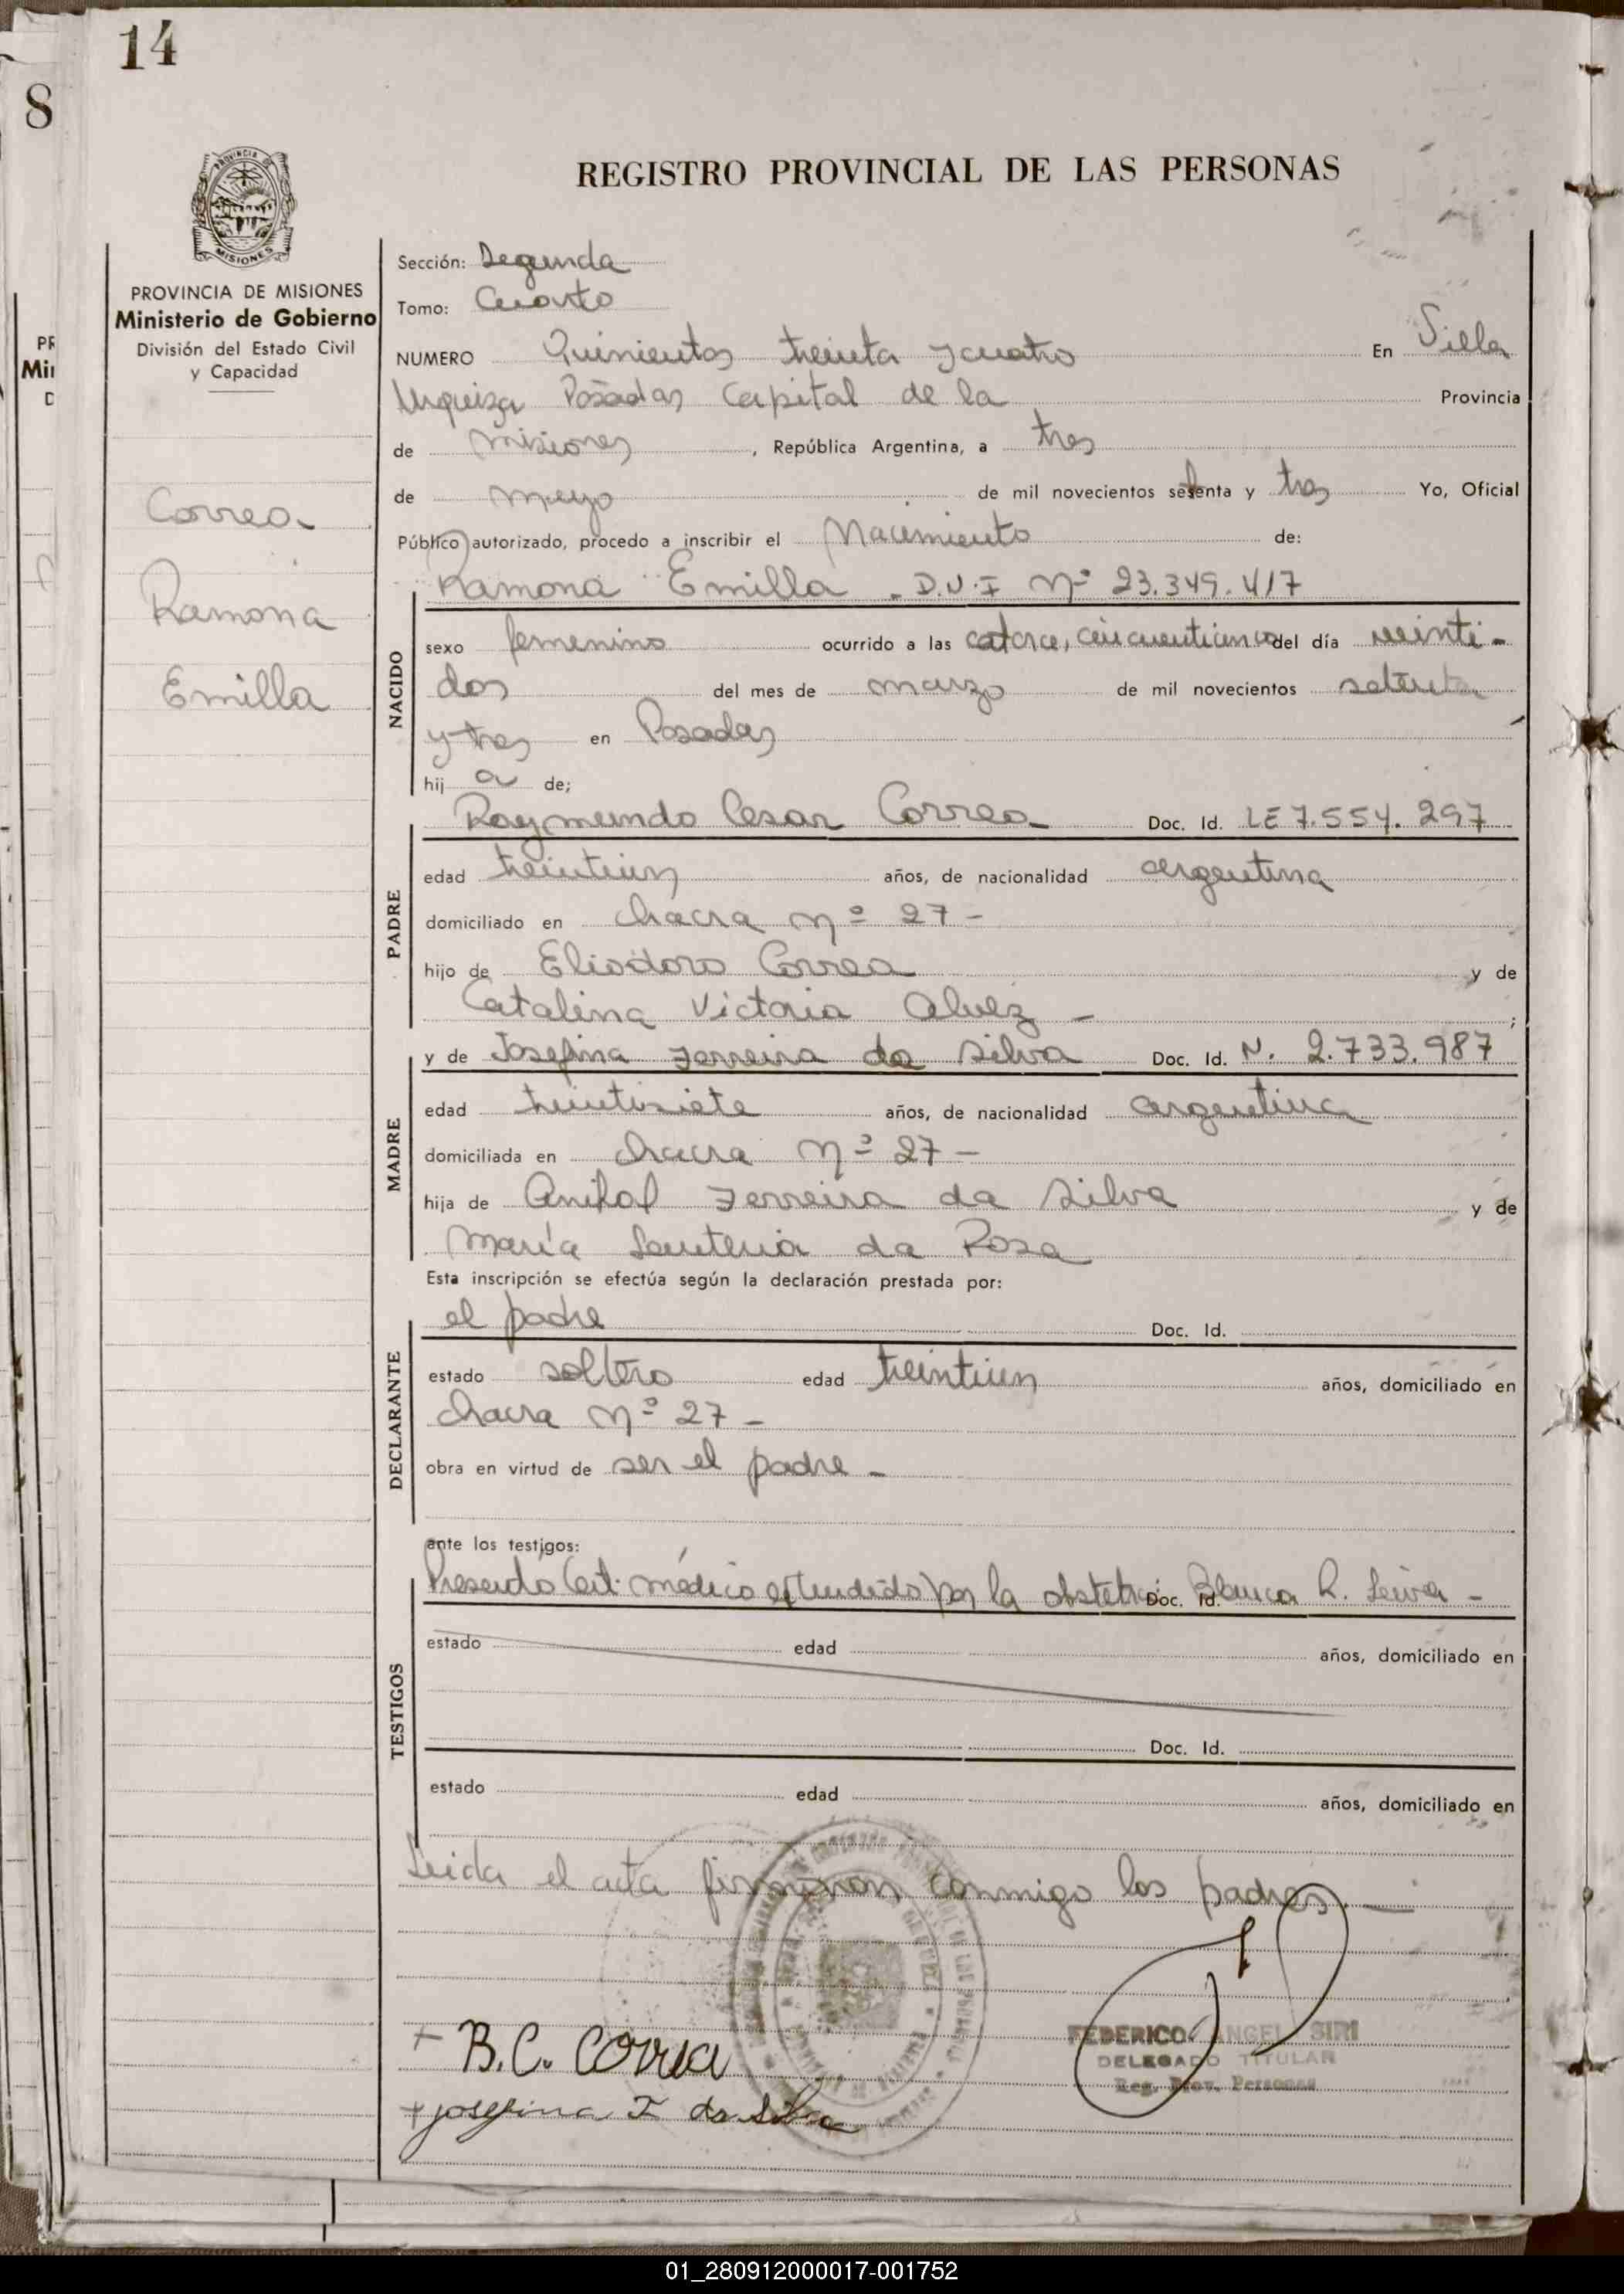 14
8
REGISTRO PROVINCIAL DE LAS PERSONAS
PROVINCIA DE MISIONES
Ministerio de Gobierno
División del Estado Civil
y Capacidad
Correa
Ramona
Emilla
Sección: Segunda
Tomo: Cuarto
NUMERO Quinientos treinta y cuatro En Villa
Urquiza Posadas Capital de la Provincia
de Misiones, República Argentina, a tres
de mayo de mil novecientos setenta y tres Yo, Oficial
Público autorizado, procedo a inscribir el Nacimiento de:
Ramona Emilla. D.N.I Nº 23.349.417
NACIDO
sexo femenino ocurrido a las catorce, cincuenticinco del día veinti-
dos del mes de marzo de mil novecientos setenta
y tres en Posadas
hij a de;
Raymundo Cesar Correa Doc. Id. LE 7.554.297
PADRE
edad treintiun años, de nacionalidad argentina
domiciliado en chacra nº 27 -
hijo de Eliodoro Correa y de
Catalina Victoria Alvez - ;
y de Josefina Ferreira da Silva Doc. Id. N. 2.733.987
MADRE
edad treintisiete años, de nacionalidad argentina
domiciliada en chacra nº 27 -
hija de Anibal Ferreira da Silva y de
María da Rosa
Esta inscripción se efectúa según la declaración prestada por:
el padre Doc. Id.
DECLARANTE
estado soltero edad treintiun años, domiciliado en
chacra nº 27 -
obra en virtud de ser el padre -
ante los testigos:
Presentó Cert. médico extendido por la obstetra: Doc. Id. Blanca R. Leiva -
TESTIGOS
estado edad años, domiciliado en
Doc. Id.
estado edad años, domiciliado en
Leida el acta firmaron conmigo los padres. -
+ B.C. Correa
+ Josefina F da Silva
FEDERICO ANGEL SIRI
DELEGADO TITULAR
Reg. Prov. Personas
01_280912000017-001752